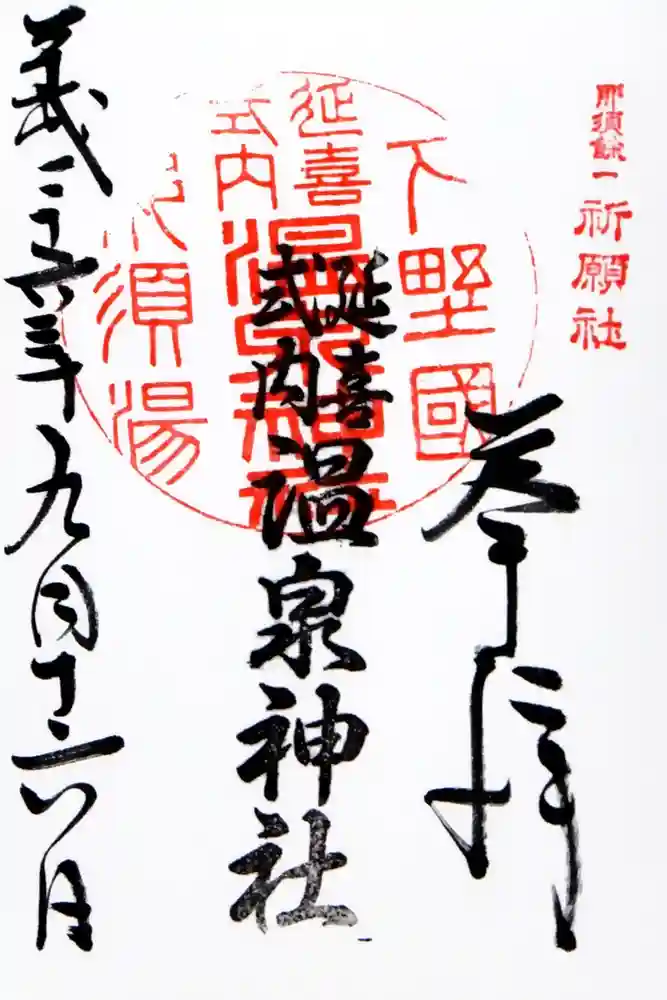 那須餘一
祈願社
奉拝
下野國
延喜
式内
温泉神社
那須湯
延喜
式内
温泉神社
平成二十六年九月十六日